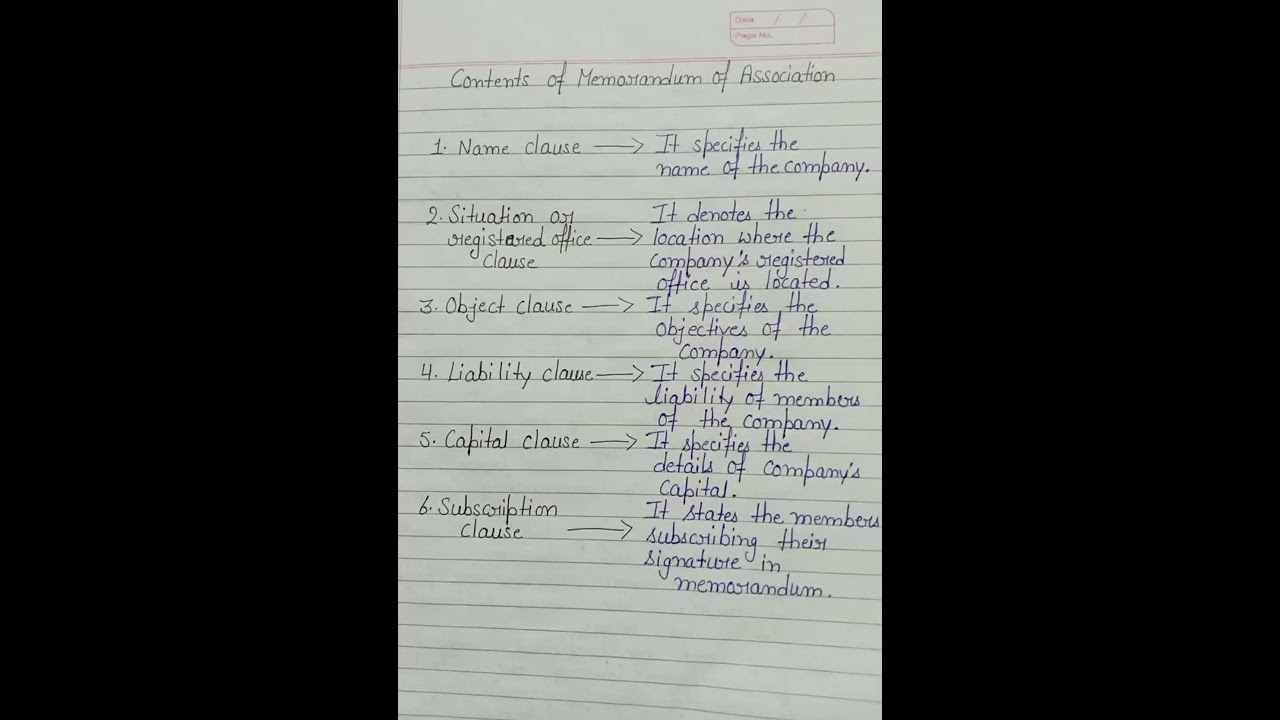 Date / /
Page No.
Contents of Memorandum of Association
1. Name clause → It specifies the
name of the company.
2. Situation or It denotes the
registered office → location where the
clause company's registered
office is located.
3. Object clause → It specifies the
objectives of the
company.
4. Liability clause → It specifies the
liability of members
of the company.
5. Capital clause → It specifies the
details of company's
capital.
6. Subscription It states the members
clause → subscribing their
signature in
memorandum.